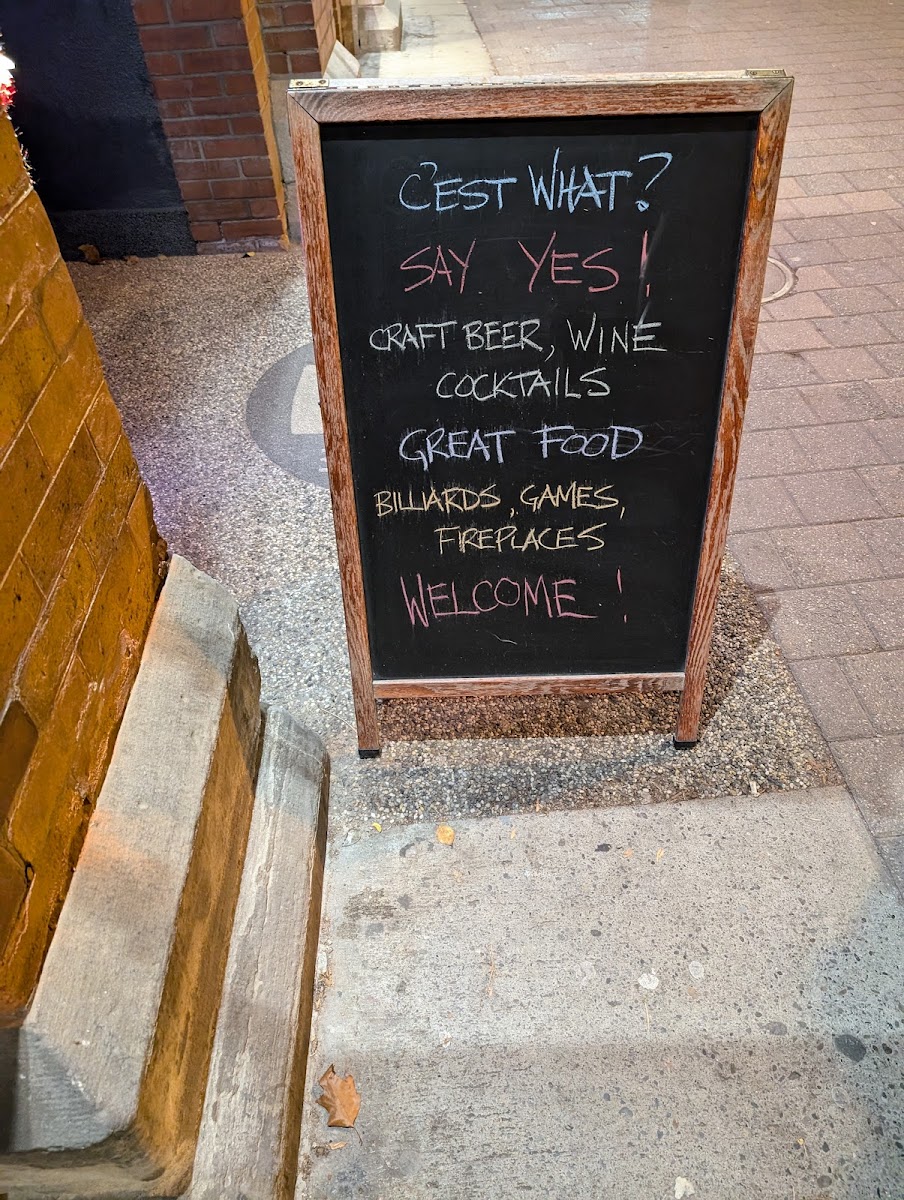 C'EST WHAT?
SAY YES!
CRAFT BEER, WINE
COCKTAILS
GREAT FOOD
BILLIARDS, GAMES,
FIREPLACES
WELCOME!